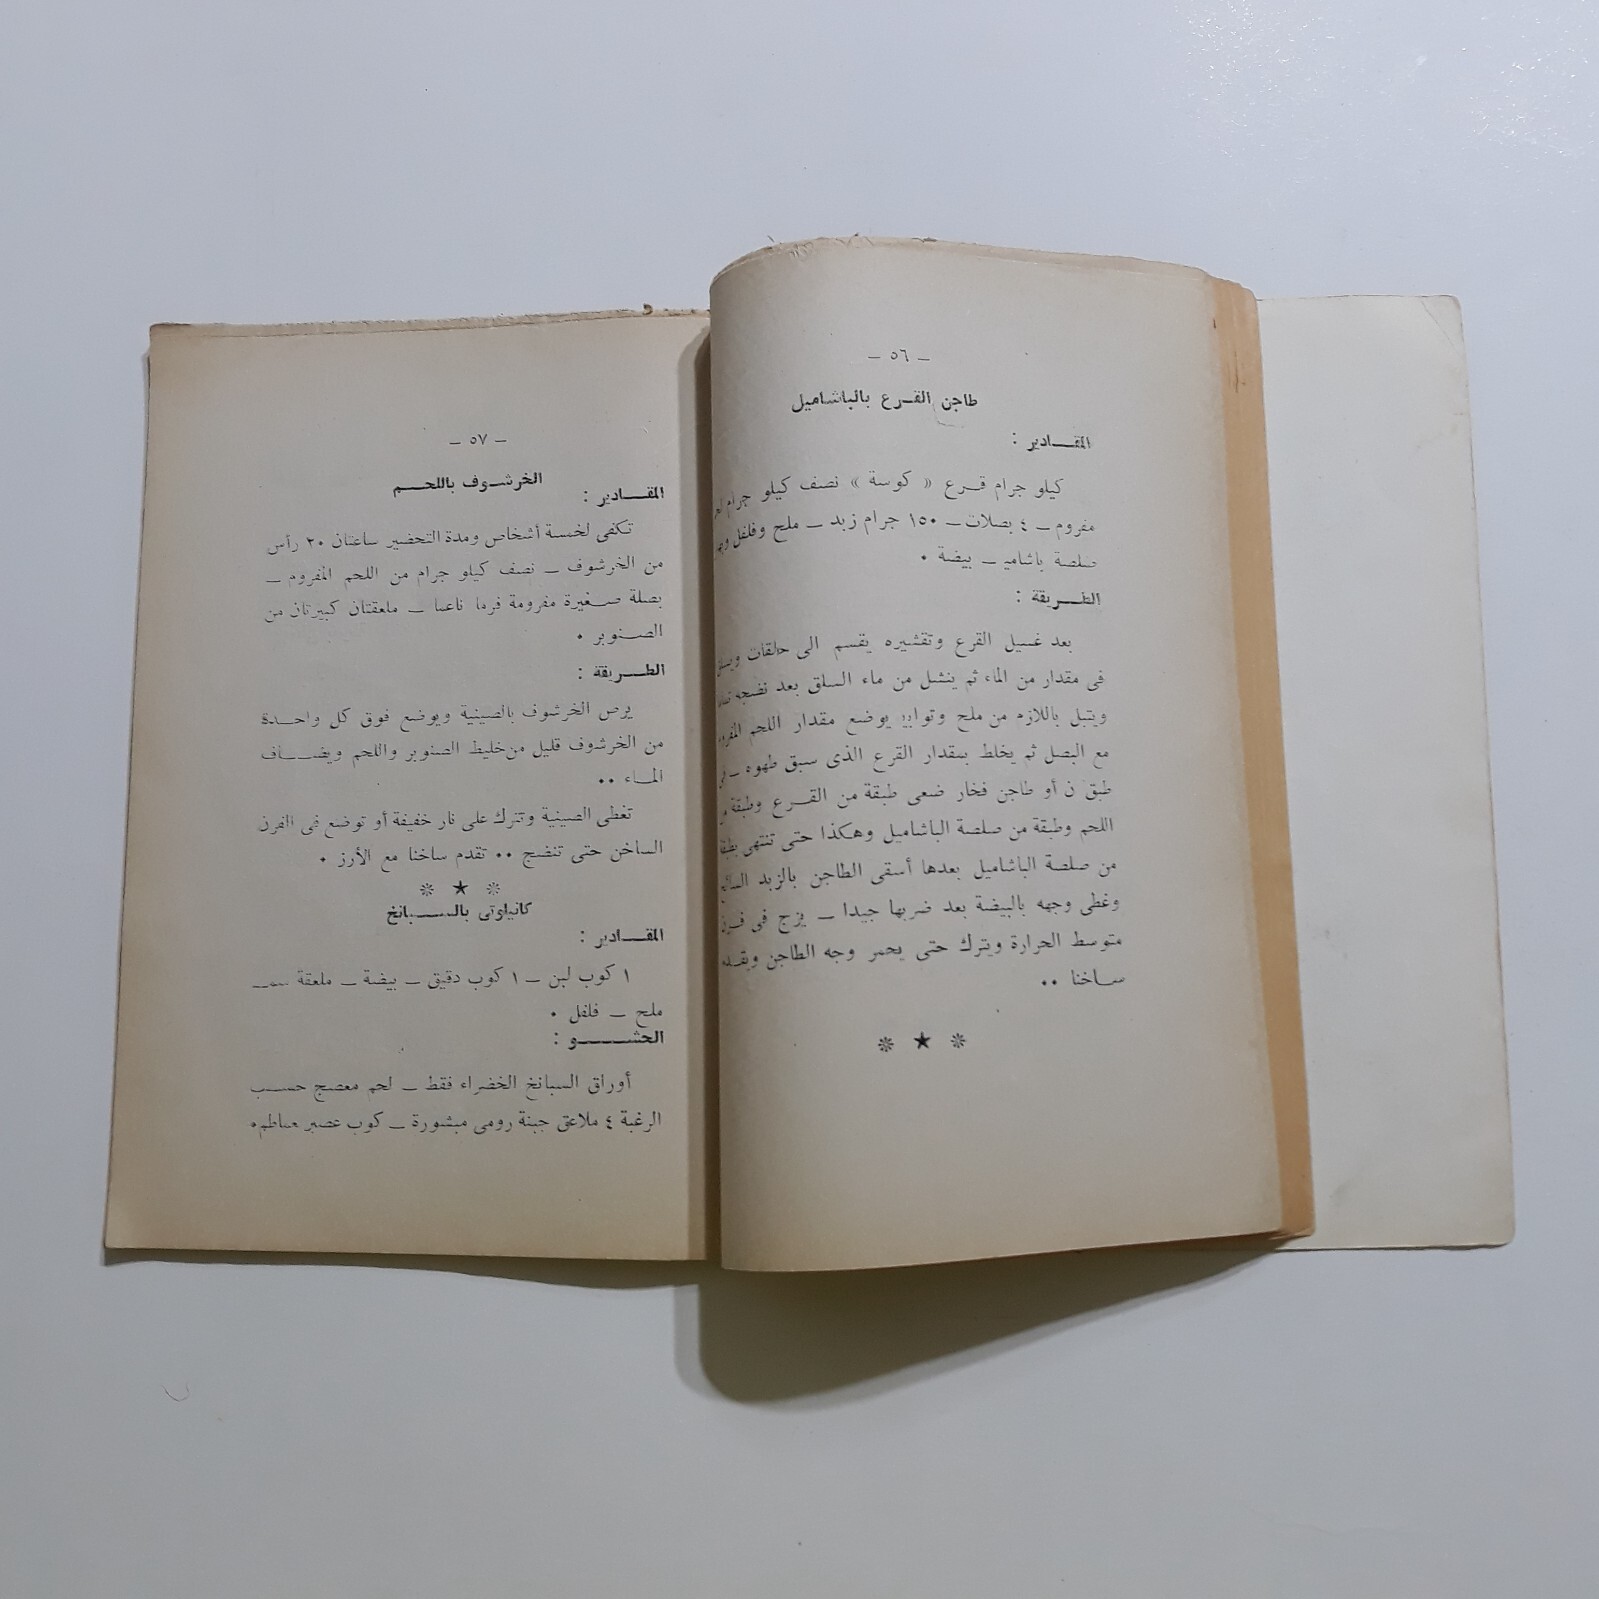 — ٥٦ —
طاجن القرع بالباشاميل
المقادير :
كيلو جرام قرع « كوسة » نصف كيلو جرام
مفروم — ٤ بصلات — ١٥٠ جرام زبد — ملح وفلفل
صلصة باشاميـ — بيضة ٠
الطريقة :
بعد غسيل القرع وتقشيره يقسم الى حلقات
فى مقدار من الماء ثم ينشل من ماء السلق بعد نضجه
ويتبل باللازم من ملح وتوابل يوضع مقدار اللحم
مع البصل ثم يخلط بمقدار القرع الذى سبق طهوه —
طبق ن أو طاجن فخار ضعى طبقة من القرع وطبقة
اللحم وطبقة من صلصة الباشاميل وهكذا حتى تنتهى
من صلصة الباشاميل بعدها أسقى الطاجن بالزبد
وغطى وجهه بالبيضة بعد ضربها جيدا — يزج فى
متوسط الحرارة ويترك حتى يحمر وجه الطاجن
ساخنا ٠٠
— ٥٧ —
الخرشوف باللحم
المقادير :
تكفى لخمسة أشخاص ومدة التحضير ساعتان ٢٠ رأس
من الخرشوف — نصف كيلو جرام من اللحم المفروم —
بصلة صغيرة مفرومة فرما ناعما — ملعقتان كبيرتان من
الصنوبر ٠
الطريقة :
يرص الخرشوف بالصينية ويوضع فوق كل واحدة
من الخرشوف قليل من خليط الصنوبر واللحم ويضاف
الماء ٠٠
تغطى الصينية وتترك على نار خفيفة أو توضع فى الفرن
الساخن حتى تنضج ٠٠ تقدم ساخنا مع الأرز ٠
كانيلوتى بالسبانخ
المقادير :
١ كوب لبن — ١ كوب دقيق — بيضة — ملعقة
ملح — فلفل ٠
الحشو :
أوراق السبانخ الخضراء فقط — لحم معصج حسب
الرغبة ٤ ملاعق جبنة رومى مبشورة — كوب عصير